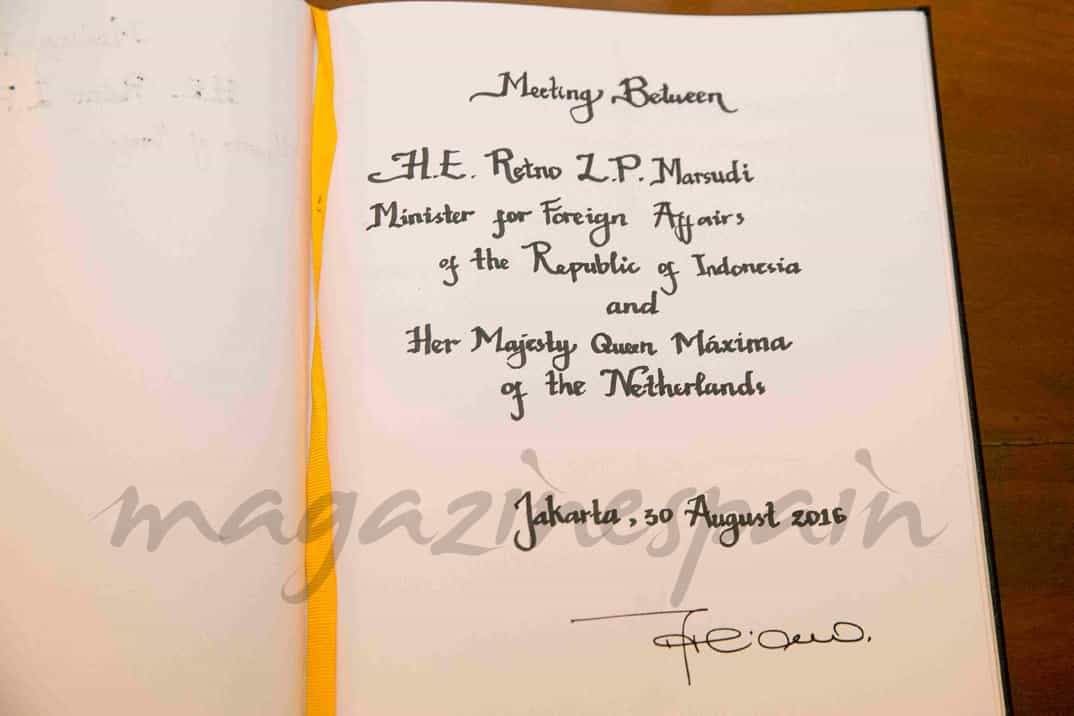 Meeting Between
H.E. Retno L.P. Marsudi
Minister for Foreign Affairs
of the Republic of Indonesia
and
Her Majesty Queen Máxima
of the Netherlands
Jakarta, 30 August 2016
magazinespain